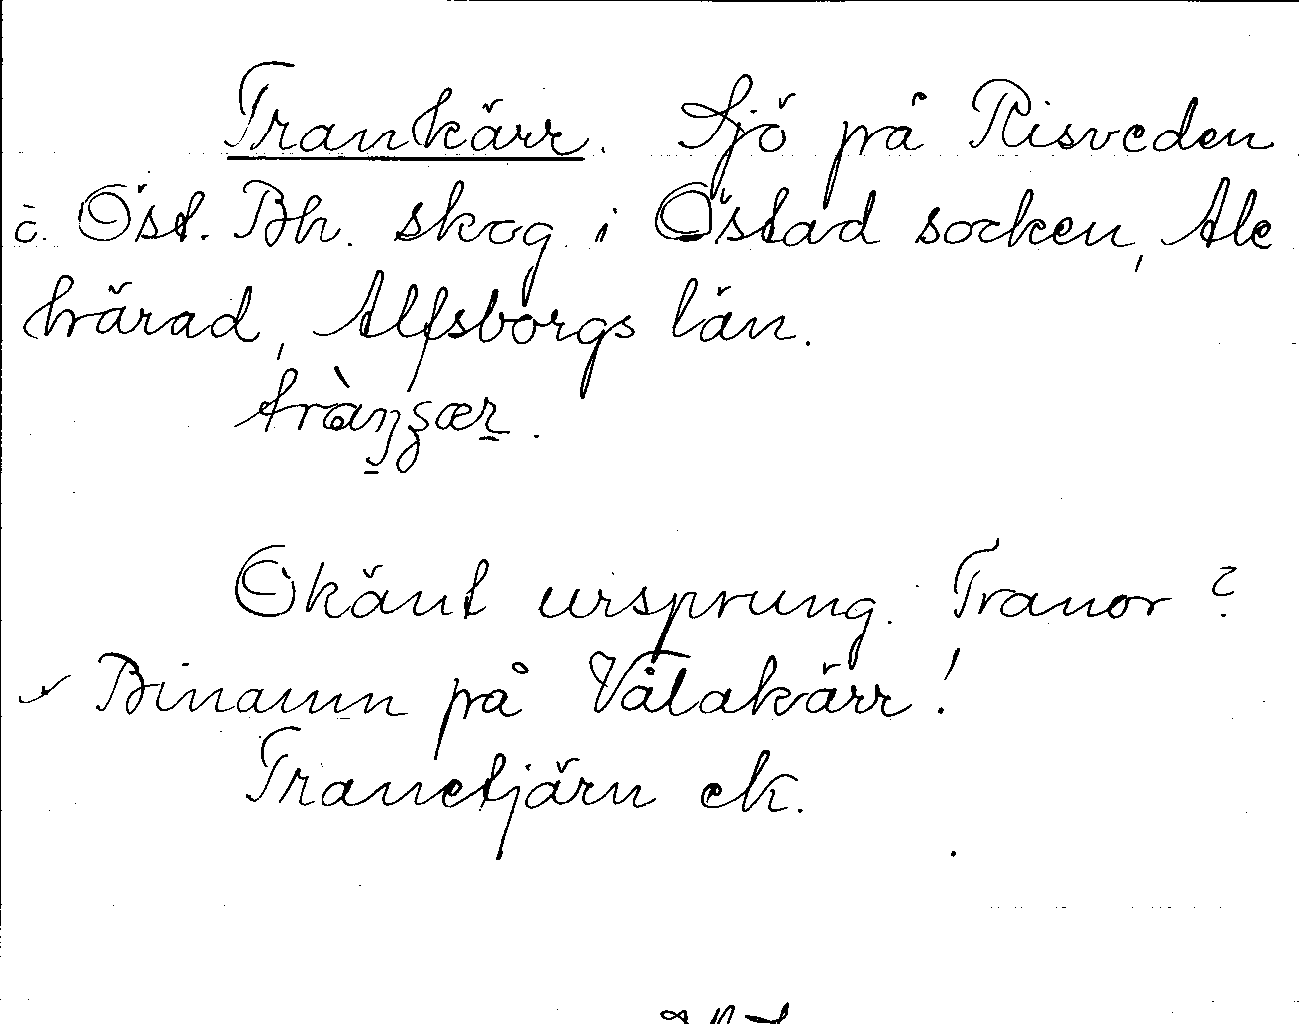 Trankärr. Sjö på Risveden
å Öst. Bh. skog i Östad socken, Ale
härad, Älfsborgs län.
Okänt ursprung. Tranor?
Binamn på Vålakärr!
Tranetjärn ek.